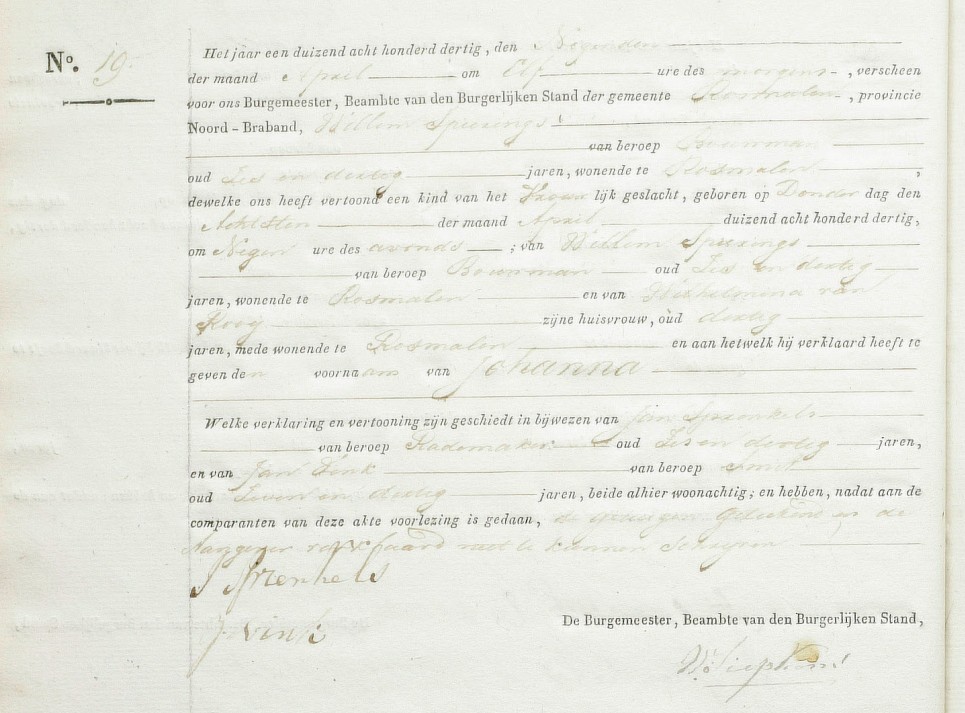 N.o 19.
Het jaar een duizend acht honderd dertig, den Negenden
der maand April om Elf ure des morgens, verscheen
voor ons Burgemeester, Beambte van den Burgerlijken Stand der gemeente Rosmalen, provincie
Noord-Braband, Willem Spierings
van beroep Bouwman
oud Zes en dertig jaren, wonende te Rosmalen,
dewelke ons heeft vertoond een kind van het Vrouwlijk geslacht, geboren op Donderdag den
Achtsten der maand April duizend acht honderd dertig,
om Negen ure des avonds; van Willem Spierings
van beroep Bouwman oud Zes en dertig
jaren, wonende te Rosmalen en van Wilhelmina van
Rooy zijne huisvrouw, oud dertig
jaren, mede wonende te Rosmalen en aan hetwelk hij verklaard heeft te
geven den voornaam van Johanna
Welke verklaring en vertooning zijn geschiedt in bijwezen van Jan
van beroep Rademaker oud Zes en dertig jaren,
en van Jan Vink van beroep Smit
oud Zeven en dertig jaren, beide alhier woonachtig; en hebben, nadat aan de
comparanten van deze akte voorlezing is gedaan, de getuigen Geteekend en de
Aangever verklaard niet te kunnen Schrijven
J Vink
De Burgemeester, Beambte van den Burgerlijken Stand,